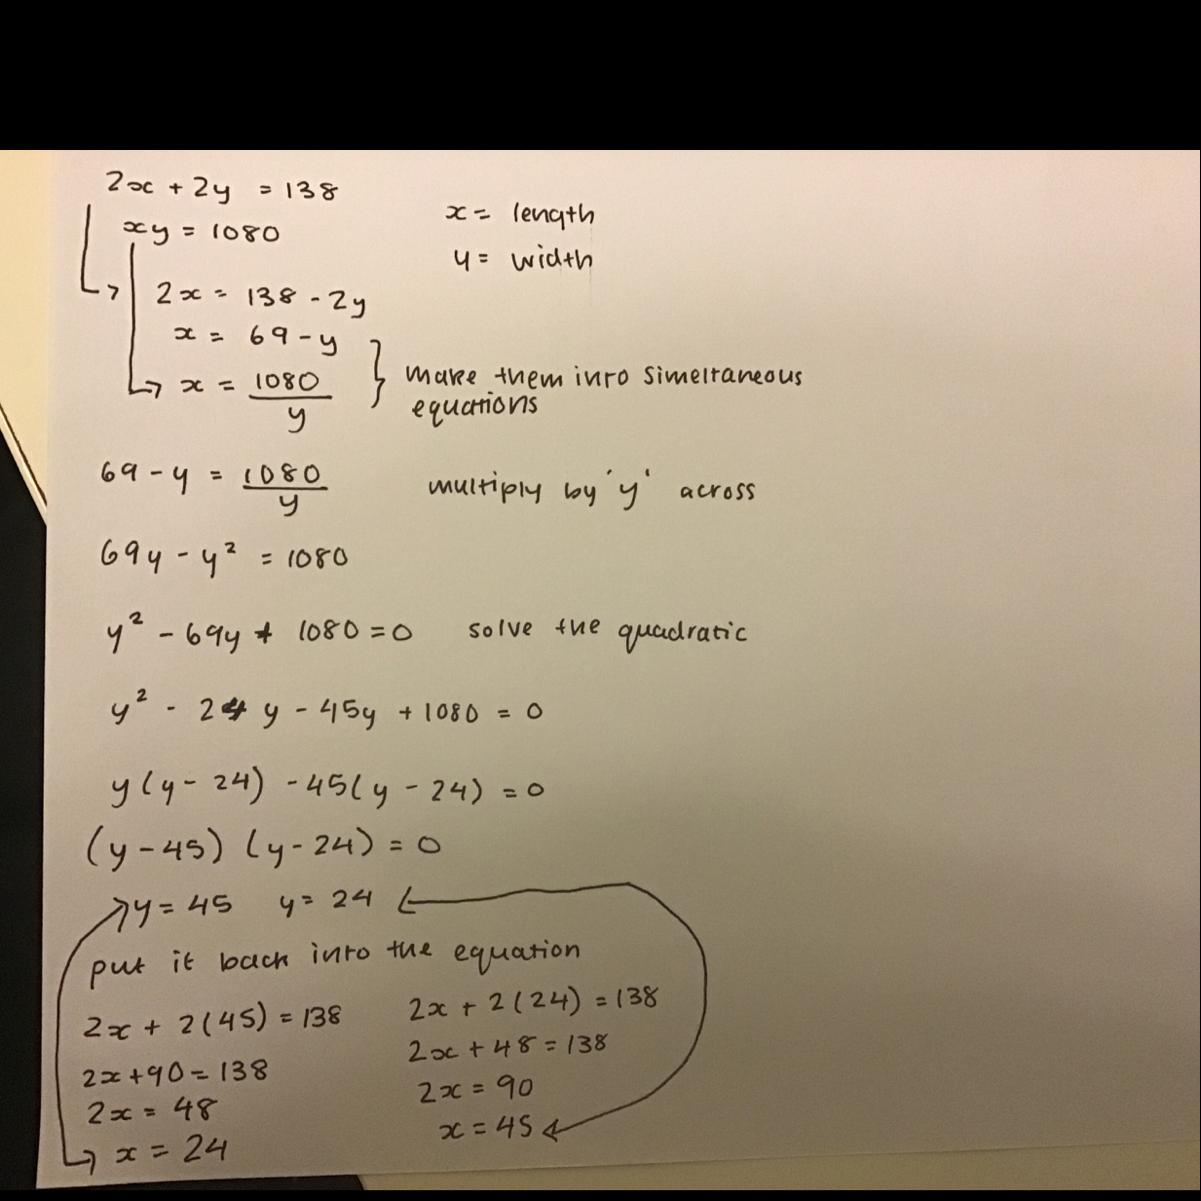 2x + 2y = 138
xy = 1080
x = length
y = width
2x = 138 - 2y
x = 69 - y
x = 1080/y
make them inro simeltaneous
equations
69 - y = 1080/y multiply by 'y' across
69y - y² = 1080
y² - 69y + 1080 = 0 solve the quadratic
y² - 24y - 45y + 1080 = 0
y(y - 24) - 45(y - 24) = 0
(y - 45) (y - 24) = 0
y = 45 y = 24
put it back into the equation
2x + 2(45) = 138
2x + 90 = 138
2x = 48
x = 24
2x + 2(24) = 138
2x + 48 = 138
2x = 90
x = 45